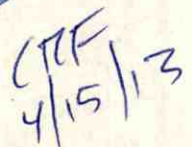 CRF
4/15/13